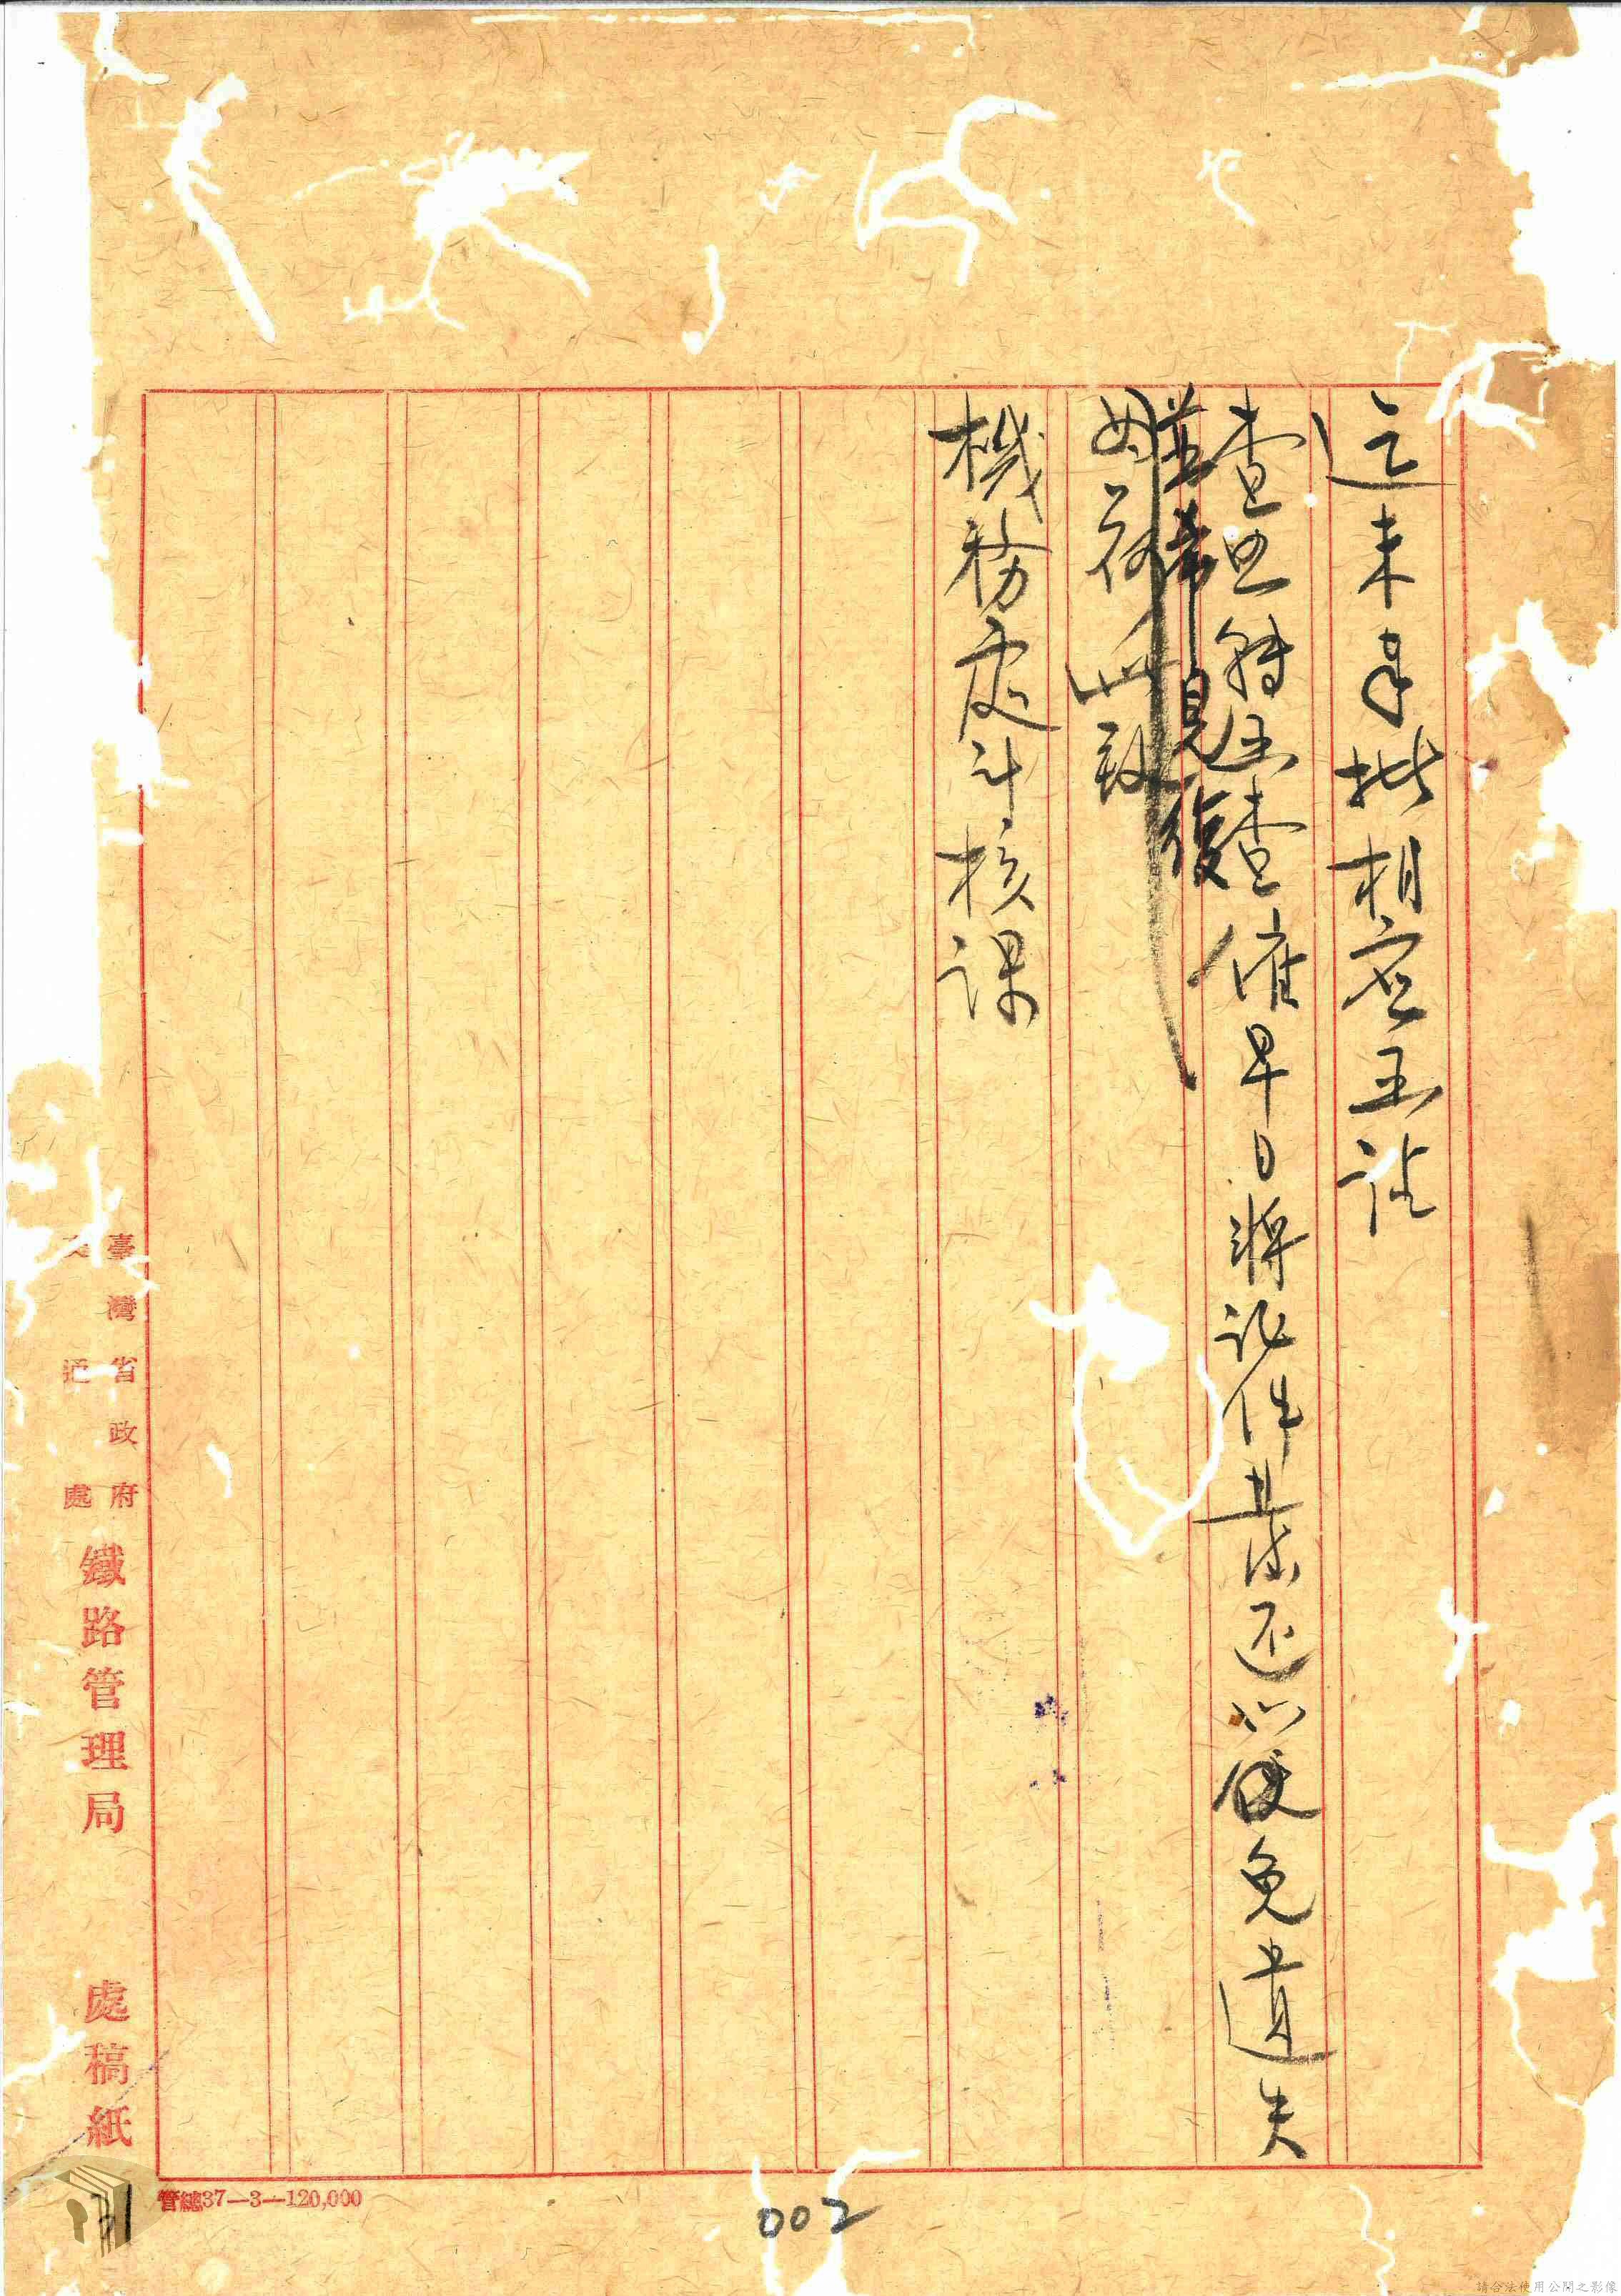 迄未奉批相應函請
查照轉函查催早日將证件並案法还以便免遺失
並希見復
為荷此致
機務處计核课
臺灣省政府
交通處
鐵路管理局
處稿紙
管總37—3—120,000
002
請合法使用公開之影像